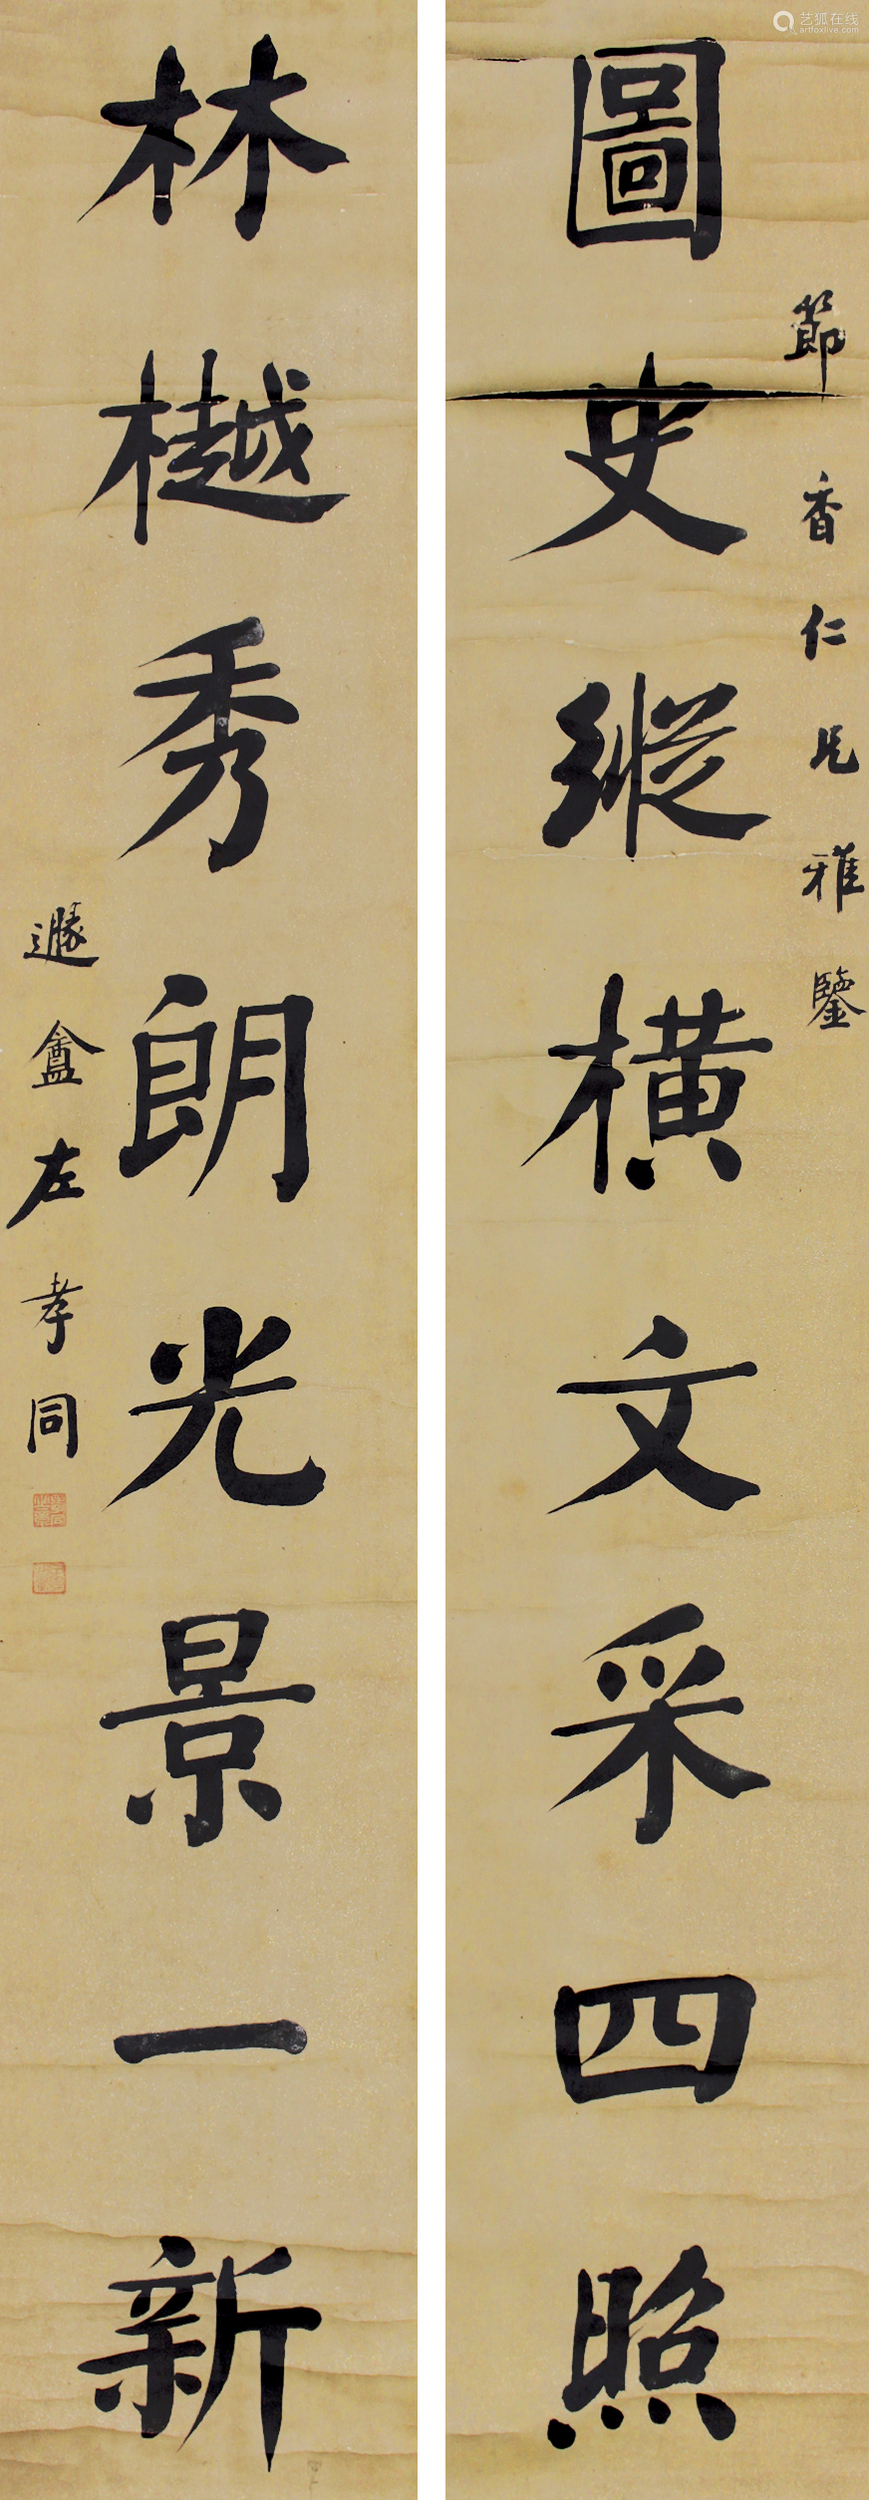 節香仁兄雅鑒
圖史縱橫文采四照
林樾秀朗光景一新
遯盦左孝同
艺狐在线
artfoxlive.com